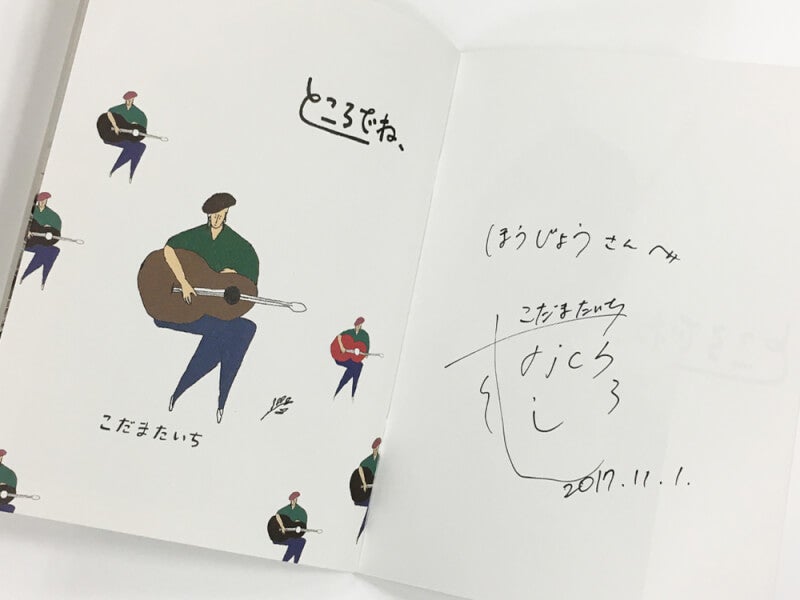 ところでね、
こだまたいち
ほうじょうさんへ
こだまたいち
2017.11.1.